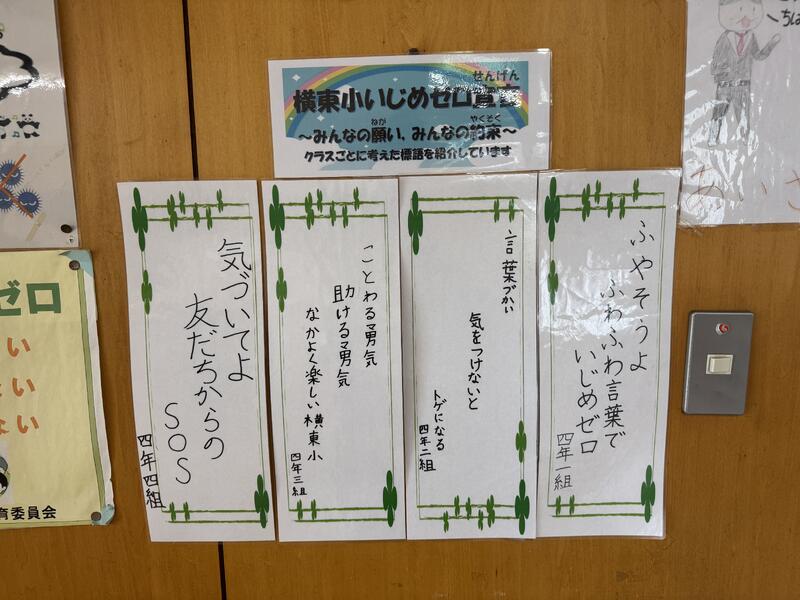 せんげん
横東小いじめゼロ宣言
ねが
やくそく
～みんなの願い，みんなの約束～
クラスごとに考えた標語を紹介しています
ふやそうよ
ふわふわ言葉で
いじめゼロ
四年一組
言葉づかい
気をつけないと
トゲになる
四年二組
ことわる勇気
助ける勇気
なかよく楽しい横東小
四年三組
気づいてよ
友だちからの
SOS
四年四組
ゼロ
い
い
ない
育委員会
ちは
あいさ